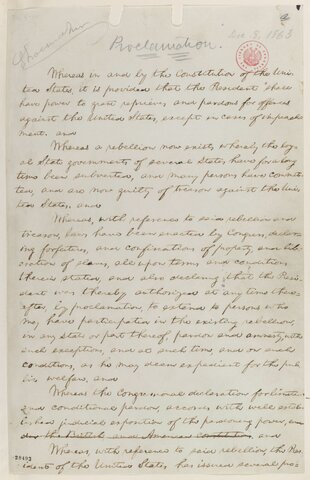 Dec. 8, 1863
Proclamation.
Whereas in and by the Constitution of the Uni-
ted States, it is provided that the President "shall
have power to grant reprieves and pardons for offences
against the United States, except in cases of impeach-
ment." and
Whereas a rebellion now exists whereby the loy-
al State governments of several States have for a long
time been subverted, and many persons have commit-
ted, and are now guilty of treason against the Uni-
ted States, and
Whereas, with reference to said rebellion and
treason, laws have been enacted by Congress, declar-
ing forfeitures, and confiscations of property, and lib-
eration of slaves, all upon terms and conditions
therein stated, and also declaring that the Pres-
ident was thereby authorized at any time there-
after, by proclamation, to extend to persons who
may have participated in the existing rebellion,
in any state or part thereof, pardon and amnesty, with
such exceptions, and at such times and on such
conditions, as he may deem expedient for the pub-
lic welfare, and
Whereas the Congressional declaration for limited
and conditional pardon, accords with well estab-
lished judicial exposition of the pardoning power, an-
der the British and American Constitutions, and
Whereas, with reference to said rebellion, the Pres-
ident of the United States has issued several proc-
28493